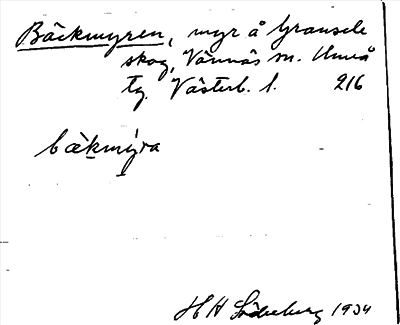 Bäckmyren, myr å Gransele
skog, Vännäs sn. Umeå
tg. Västerb. l. 216
bækmýra
H H Söderberg 1934